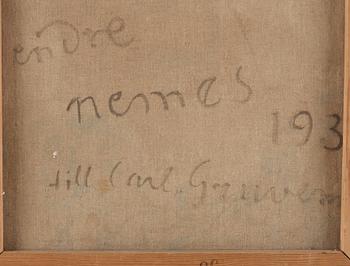 endre
nemes
193
till Carl